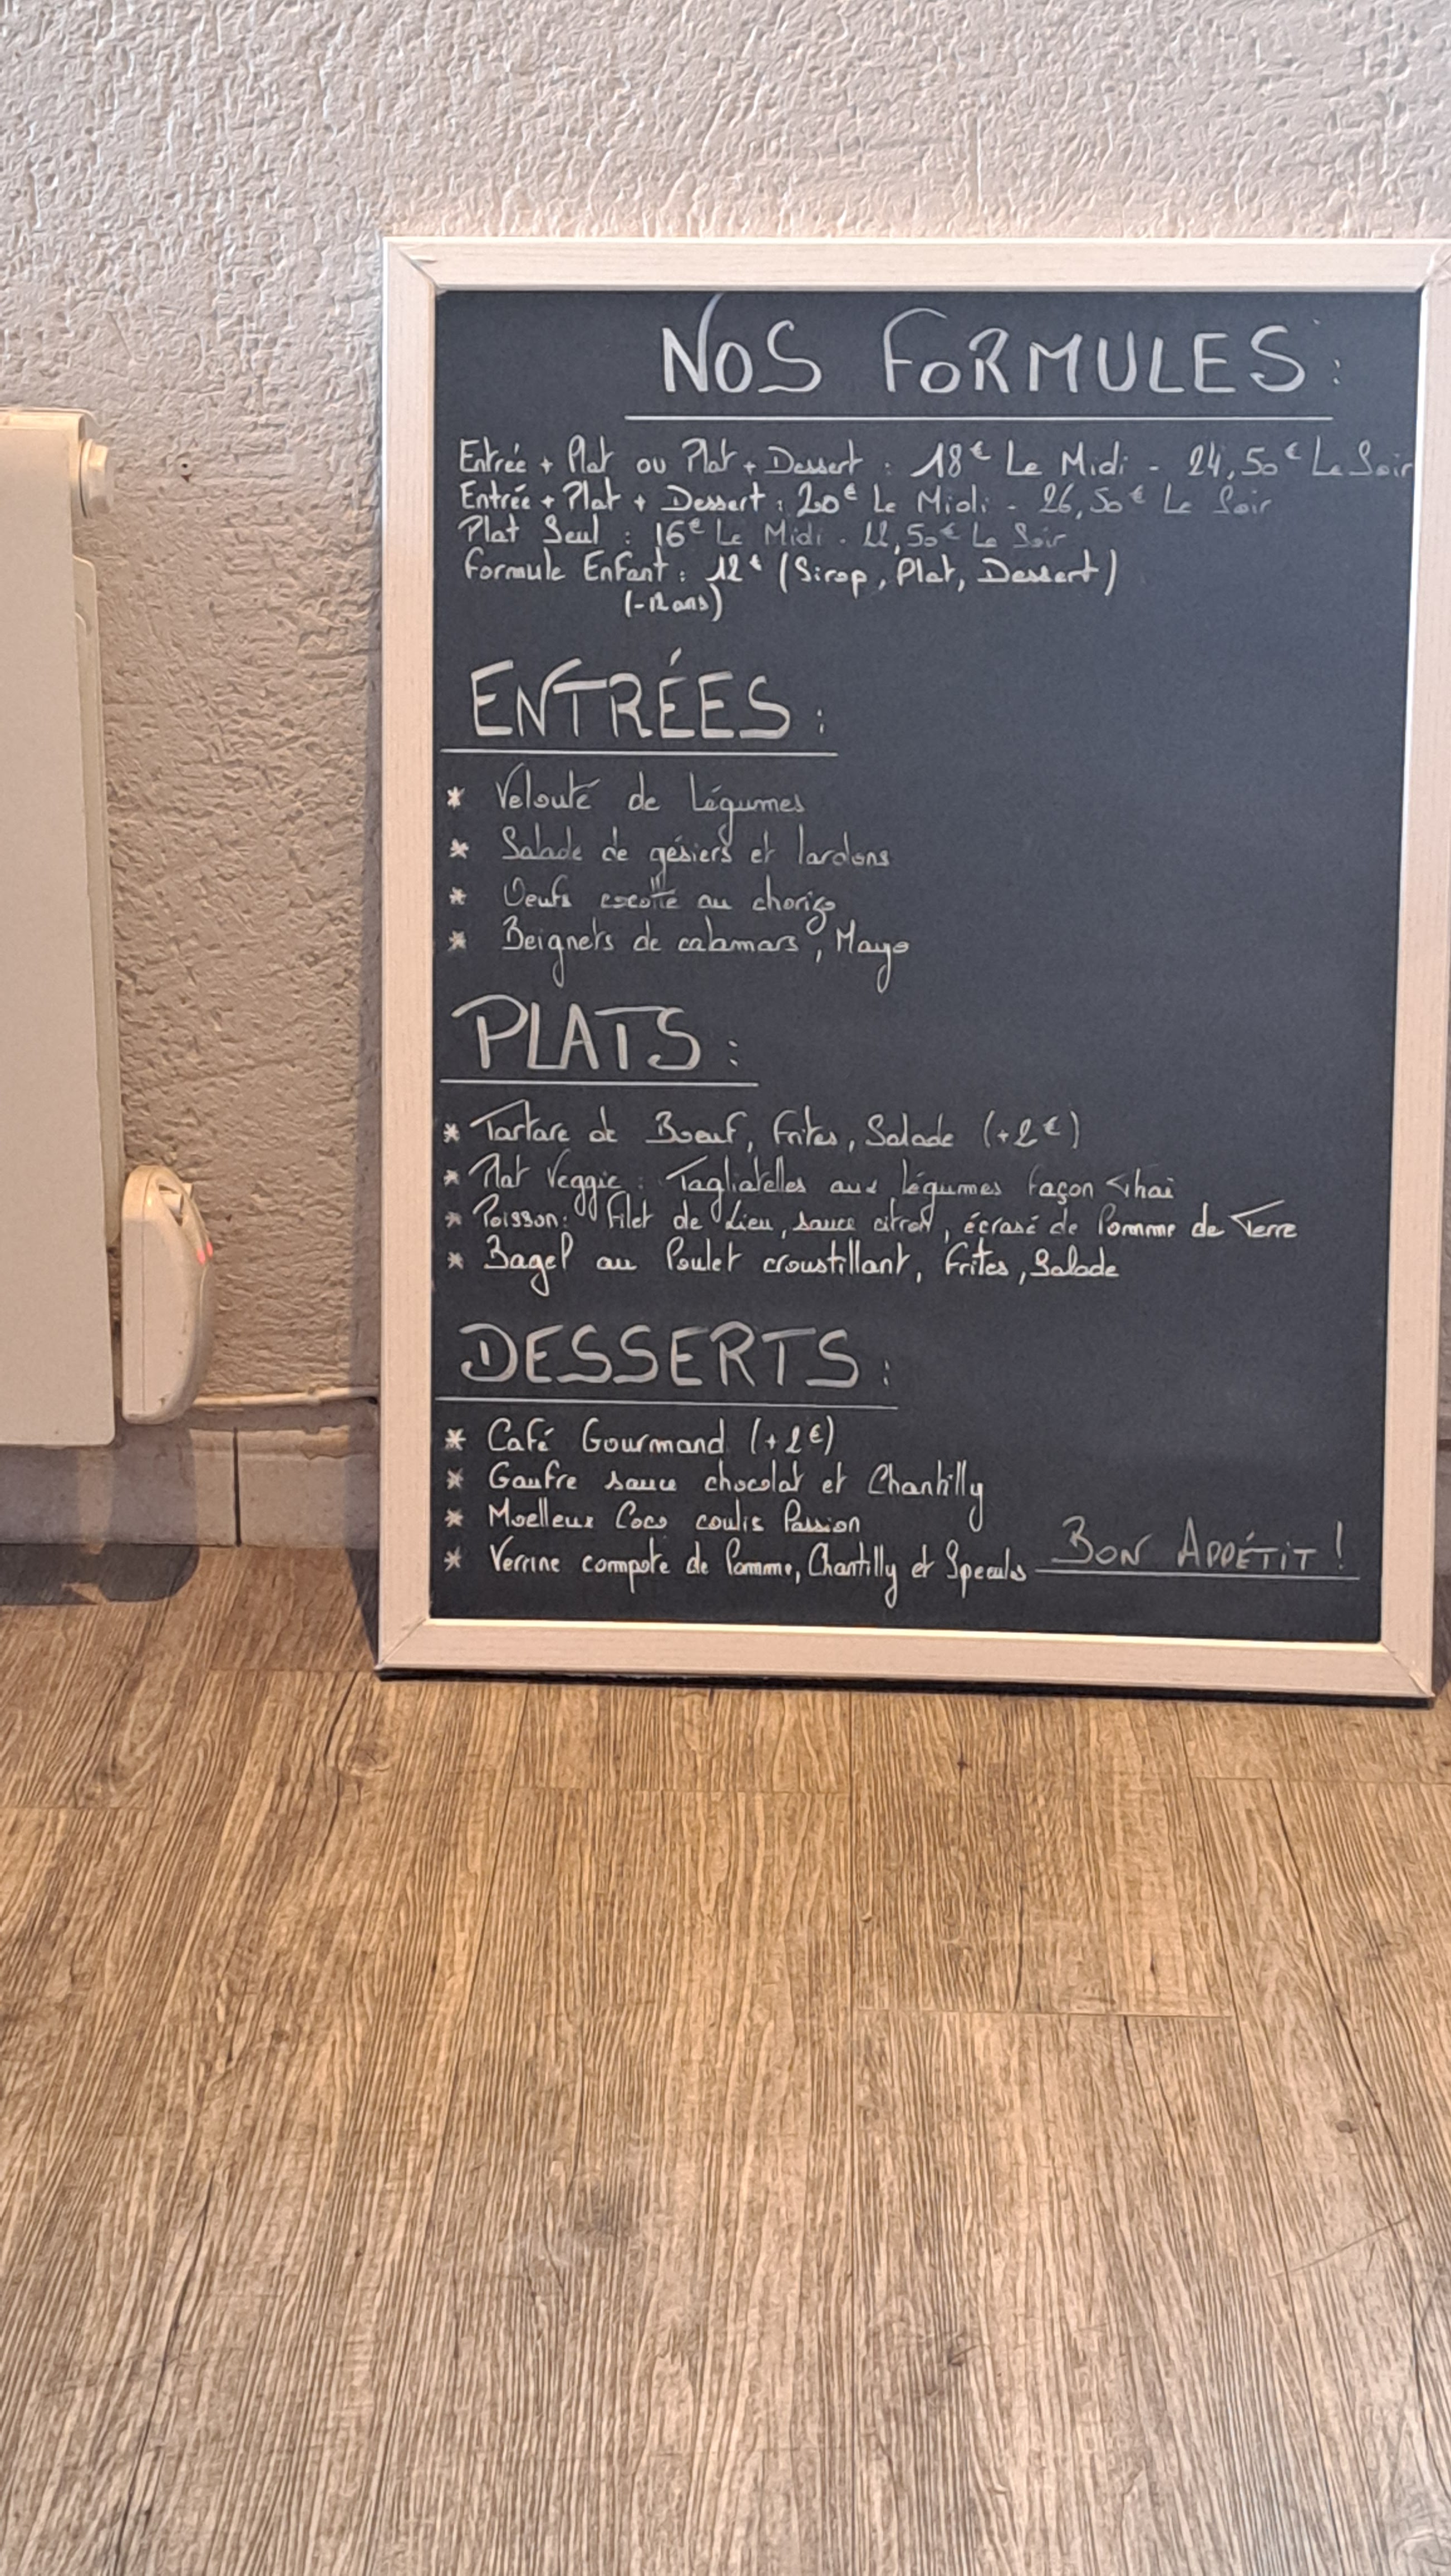 NOS FORMULES :
Entrée + Plat ou Plat + Dessert : 18€ Le Midi - 24,50€ Le Soir
Entrée + Plat + Dessert : 20€ Le Midi - 26,50€ Le Soir
Plat Seul : 16€ Le Midi - 22,50€ Le Soir
Formule Enfant : 12€ (Sirop, Plat, Dessert)
(-12 ans)
ENTRÉES :
* Velouté de Légumes
* Salade de gésiers et lardons
* Oeufs cocotte au chorizo
* Beignets de calamars, Mayo
PLATS :
* Tartare de Boeuf, Frites, Salade (+2€)
* Plat Veggie : Tagliatelles aux légumes façon Thaï
* Poisson : Filet de Lieu, sauce citron, écrasé de Pomme de Terre
* Bagel au Poulet croustillant, Frites, Salade
DESSERTS :
* Café Gourmand (+2€)
* Gaufre sauce chocolat et Chantilly
* Moelleux Coco coulis Passion
* Verrine compote de Pomme, Chantilly et Speculos
BON APPÉTIT !